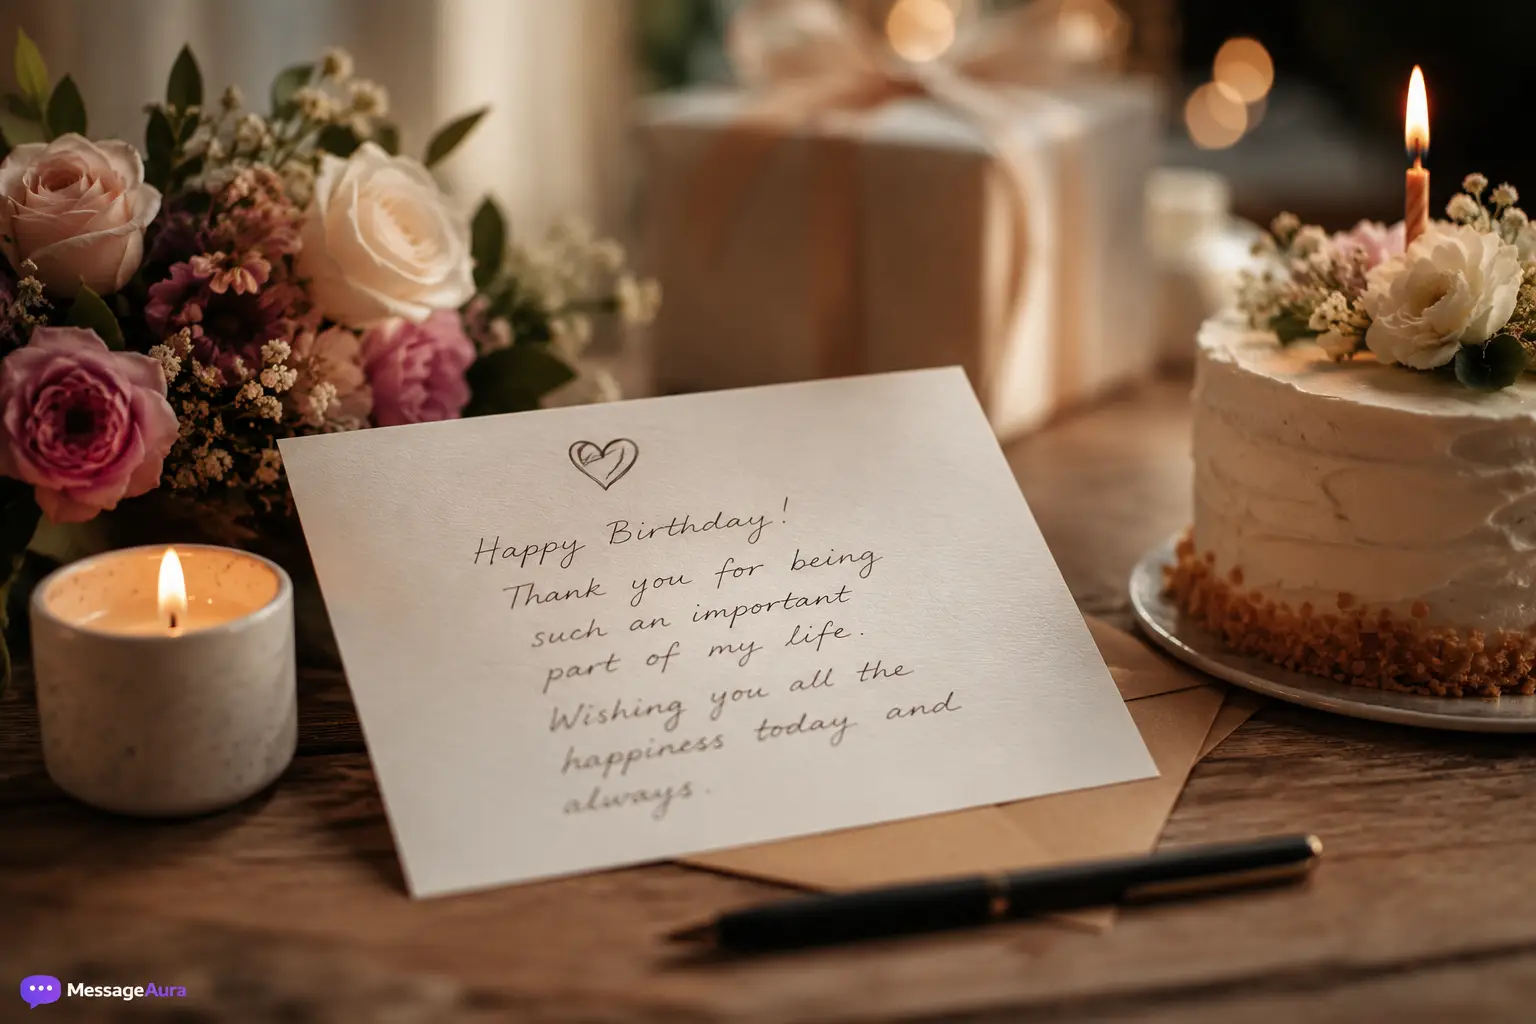 Happy Birthday!
Thank you for being
such an important
part of my life.
Wishing you all the
happiness today and
always.
MessageAura